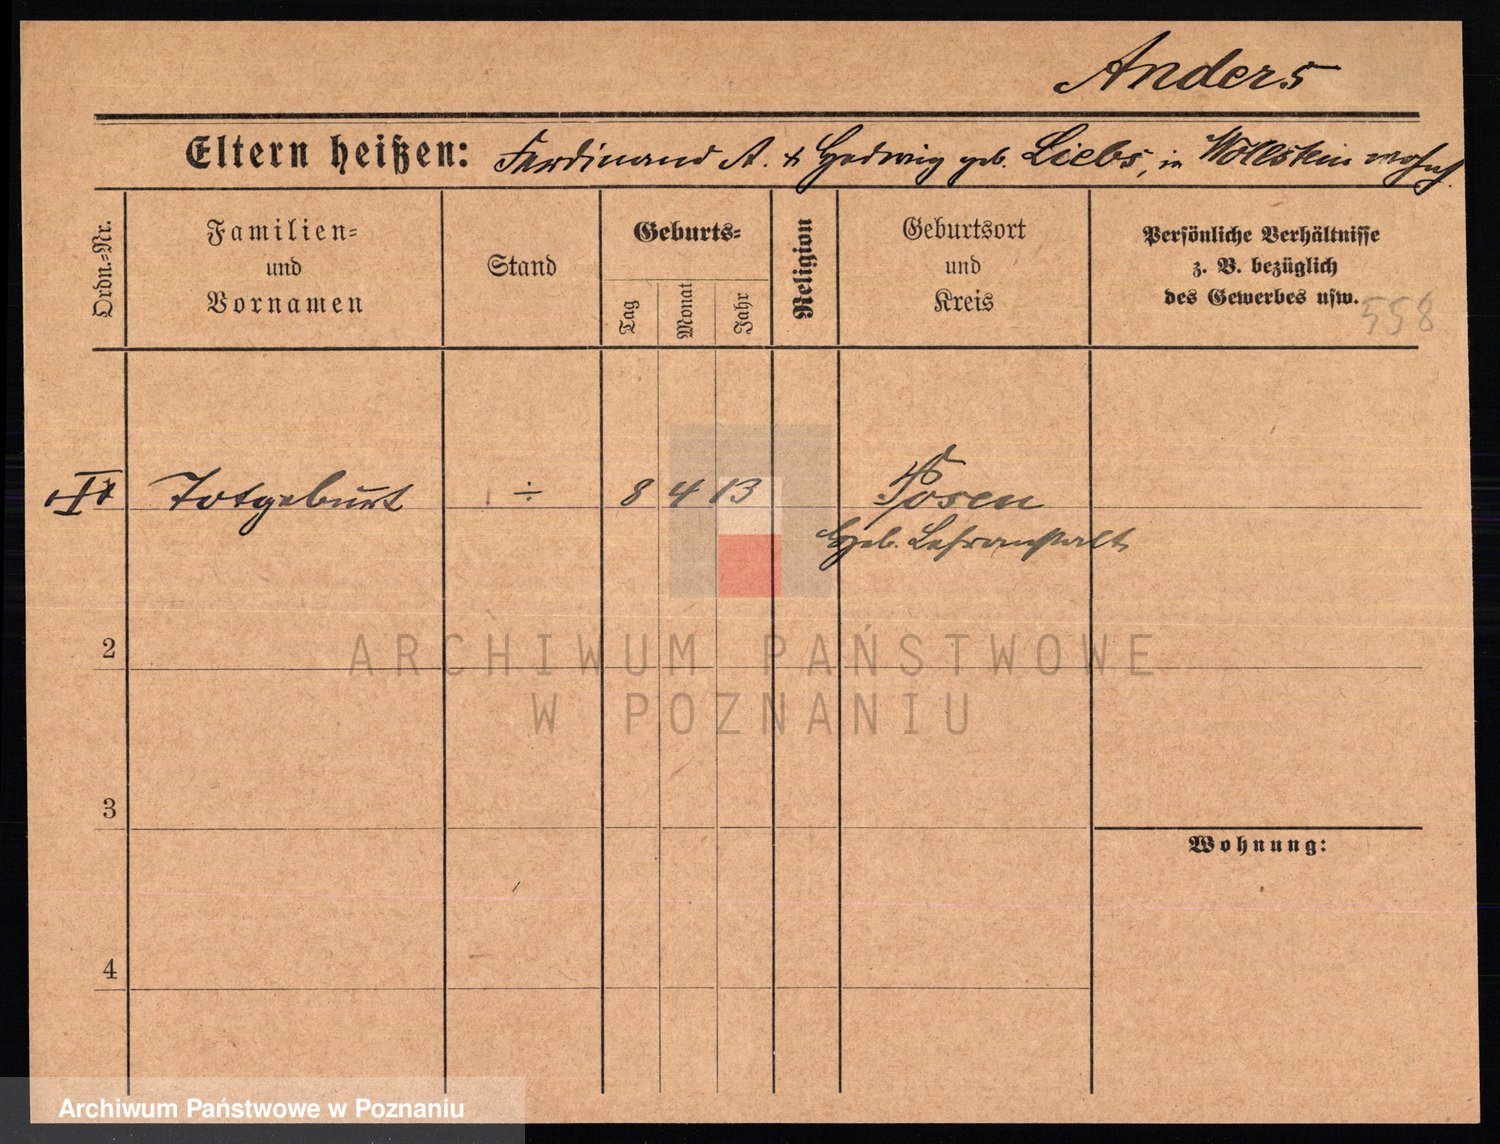 Anders
Eltern heißen: Ferdinand A. & Hedwig geb. Liebs, in Wollstein wohnh.
Ordn.-Nr.
Familien-
und
Vornamen
Stand
Geburts-
Tag
Monat
Jahr
Religion
Geburtsort
und
Kreis
Persönliche Verhältnisse
z. B. bezüglich
des Gewerbes usw.
558
Totgeburt ÷ 8 4 13 Posen
Heb. Lehranstalt
2
ARCHIWUM PAŃSTWOWE
W POZNANIU
3
Wohnung:
4
Archiwum Państwowe w Poznaniu